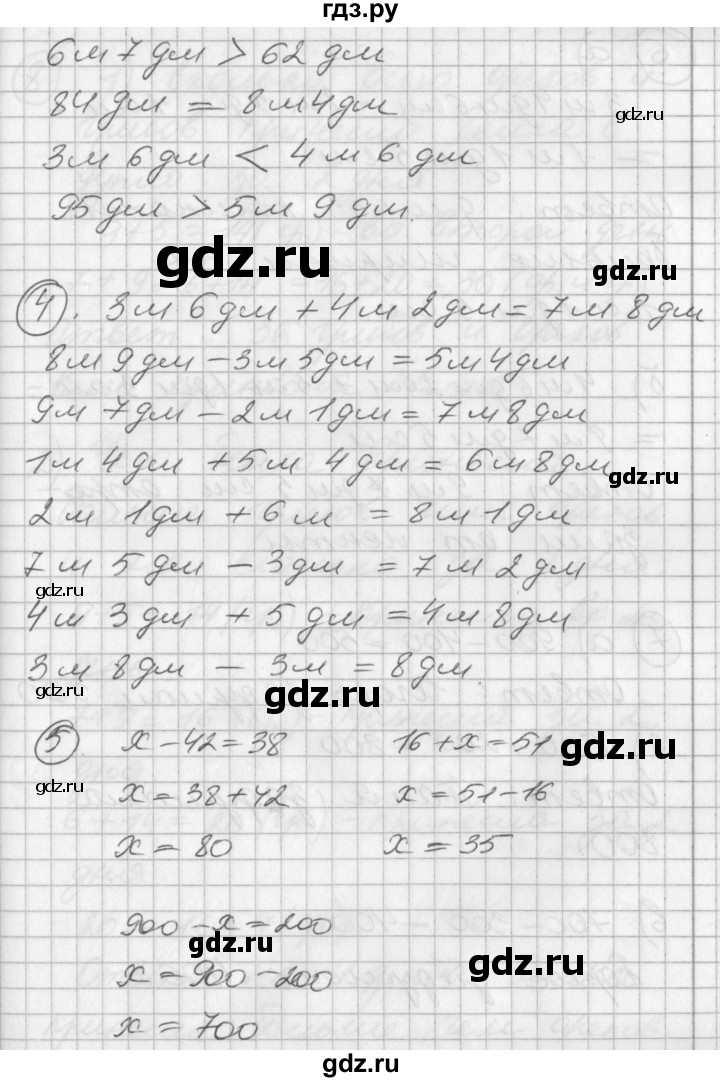 гдз.ру
6м 7дм > 62 дм
84 дм = 8м 4дм
3м 6дм < 4м 6дм
95дм > 5м 9дм.
gdz.ru
gdz.ru
④. 3м 6дм + 4м 2дм = 7м 8дм
8м 9дм − 3м 5дм = 5м 4дм
9м 7дм − 2м 1дм = 7м 8дм
1м 4дм + 5м 4дм = 6м 8дм
gdz.ru
2м 1дм + 6м = 8м 1дм
7м 5дм − 3дм = 7м 2дм
gdz.ru
4м 3дм + 5дм = 4м 8дм
3м 8дм − 3м = 8дм.
gdz.ru
gdz.ru
⑤. x − 42 = 38 16 + x = 51
gdz.ru
gdz.ru
x = 38 + 42 x = 51 − 16
x = 80 x = 35
900 − x = 200
gdz.ru
gdz.ru
x = 900 − 200
x = 700
gdz.ru